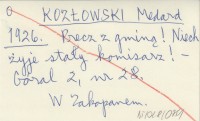 KOZŁOWSKI Medard
1926. Precz z gminą! Niech
żyje stały komisarz! –
Góral 2, nr 28.
W Zakopanem.